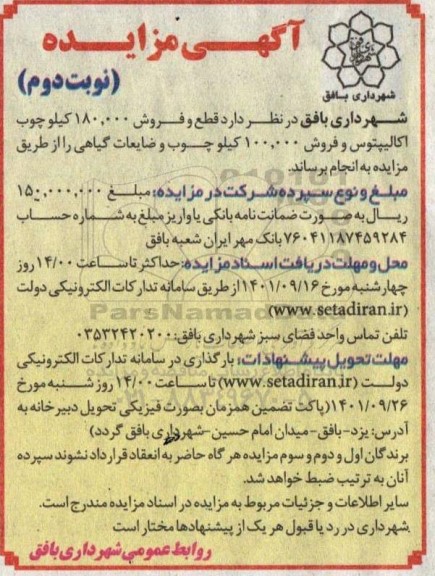 آگهی مزایده
(نوبت دوم)
شهرداری بافق
شهرداری بافق در نظر دارد قطع و فروش ۱۸۰,۰۰۰ کیلو چوب
اکالیپتوس و فروش ۱۰۰,۰۰۰ کیلو چوب و ضایعات گیاهی را از طریق
مزایده به انجام برساند.
مبلغ و نوع سپرده شرکت در مزایده: مبلغ ۱۵۰,۰۰۰,۰۰۰
ریال به صورت ضمانت نامه بانکی یا واریز مبلغ به شماره حساب
۷۶۰۴۱۱۸۷۴۵۹۲۸۴ بانک مهر ایران شعبه بافق
محل و مهلت دریافت اسناد مزایده: حداکثر تا ساعت ۱۴/۰۰ روز
چهارشنبه مورخ ۱۴۰۱/۰۹/۱۶ از طریق سامانه تدارکات الکترونیکی دولت
(www.setadiran.ir)
تلفن تماس واحد فضای سبز شهرداری بافق: ۰۳۵۳۲۴۲۰۲۰۰
مهلت تحویل پیشنهادات: بارگذاری در سامانه تدارکات الکترونیکی
دولت (www.setadiran.ir) تا ساعت ۱۴/۰۰ روز شنبه مورخ
۱۴۰۱/۰۹/۲۶ (پاکت تضمین همزمان بصورت فیزیکی تحویل دبیرخانه به
آدرس: یزد-بافق-میدان امام حسین-شهرداری بافق گردد)
برندگان اول و دوم و سوم مزایده هرگاه حاضر به انعقاد قرارداد نشوند سپرده
آنان به ترتیب ضبط خواهد شد.
سایر اطلاعات و جزئیات مربوط به مزایده در اسناد مزایده مندرج است.
شهرداری در رد یا قبول هر یک از پیشنهادها مختار است
روابط عمومی شهرداری بافق
ParsNamadData